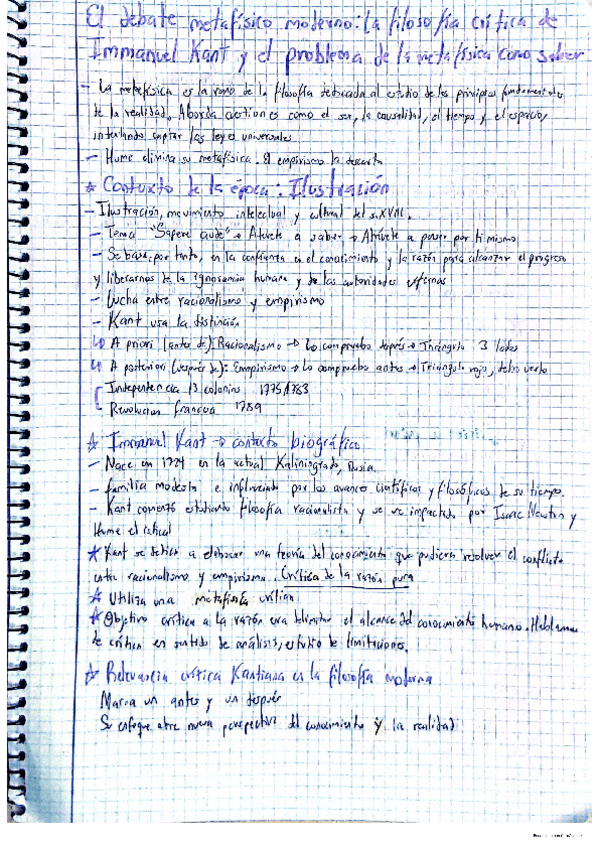 El debate metafísico moderno: la filosofía crítica de
Immanuel Kant y el problema de la metafísica como saber
- La metafísica es la rama de la filosofía dedicada al estudio de los principios fundamentales
de la realidad. Aborda cuestiones como el ser, la causalidad, el tiempo y el espacio,
intentando captar las leyes universales
- Hume elimina su metafísica. El empirismo la descarta
* Contexto de la época: Ilustración
- Ilustración, movimiento intelectual y cultural del s.XVIII.
- Tema "Sapere aude" → Atrévete a saber → Atrévete a pensar por ti mismo
- Se basa, por tanto, en la confianza en el conocimiento y la razón para alcanzar el progreso
y liberarnos de la ignorancia humana y de las autoridades externas
- Lucha entre racionalismo y empirismo
- Kant usa la distinción
↳ A priori (antes de): Racionalismo → Lo compruebo después → Triángulo 3 lados
↳ A posteriori (después de): Empirismo → lo compruebo antes → Triángulo rojo, debo verlo
Independencia 13 colonias 1775/1783
Revolucion francesa 1789
* Immanuel Kant → contexto biográfico
- Nace en 1724 en la actual Kaliningrado, Rusia.
- familia modesta e influenciado por los avances científicos y filosóficos de su tiempo.
- Kant comenzó estudiando filosofía racionalista y se ve impactado por Isaac Newton y
Hume el
* Kant se dedicó a elaborar una teoría del conocimiento que pudiera resolver el conflicto
entre racionalismo y empirismo. Crítica de la razón pura
* Utiliza una metafísica
* Objetivo crítica a la razón era delimitar el alcance del conocimiento humano. Hablamos
de crítica en sentido de análisis, estudio de limitaciones.
* Relevancia crítica Kantiana en la filosofía moderna
Marca un antes y un después
Su enfoque abre nueva perspectiva del conocimiento y la realidad